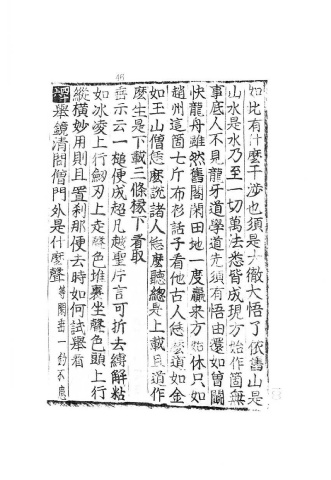 如此有什麼干涉也須是大徹大悟了依舊山是
山水是水乃至一切萬法悉皆成現方始作箇無
事底人不見龍牙道學道先須有悟由還如曾鬪
快龍舟雖然舊閣閑田地一度贏來方始休只如
趙州這箇七斤布衫話子看他古人恁麼道如金
如玉山僧恁麼說諸人恁麼聽總是上載且道作
麼生是下載三條椽下看取
垂示云一槌便成超凡越聖片言可折去縛解粘
如氷凌上行劒刃上走聲色堆裏坐聲色頭上行
縱橫妙用則且置刹那便去時如何試舉看
舉鏡清問僧門外是什麼聲 等閑垂一釣不